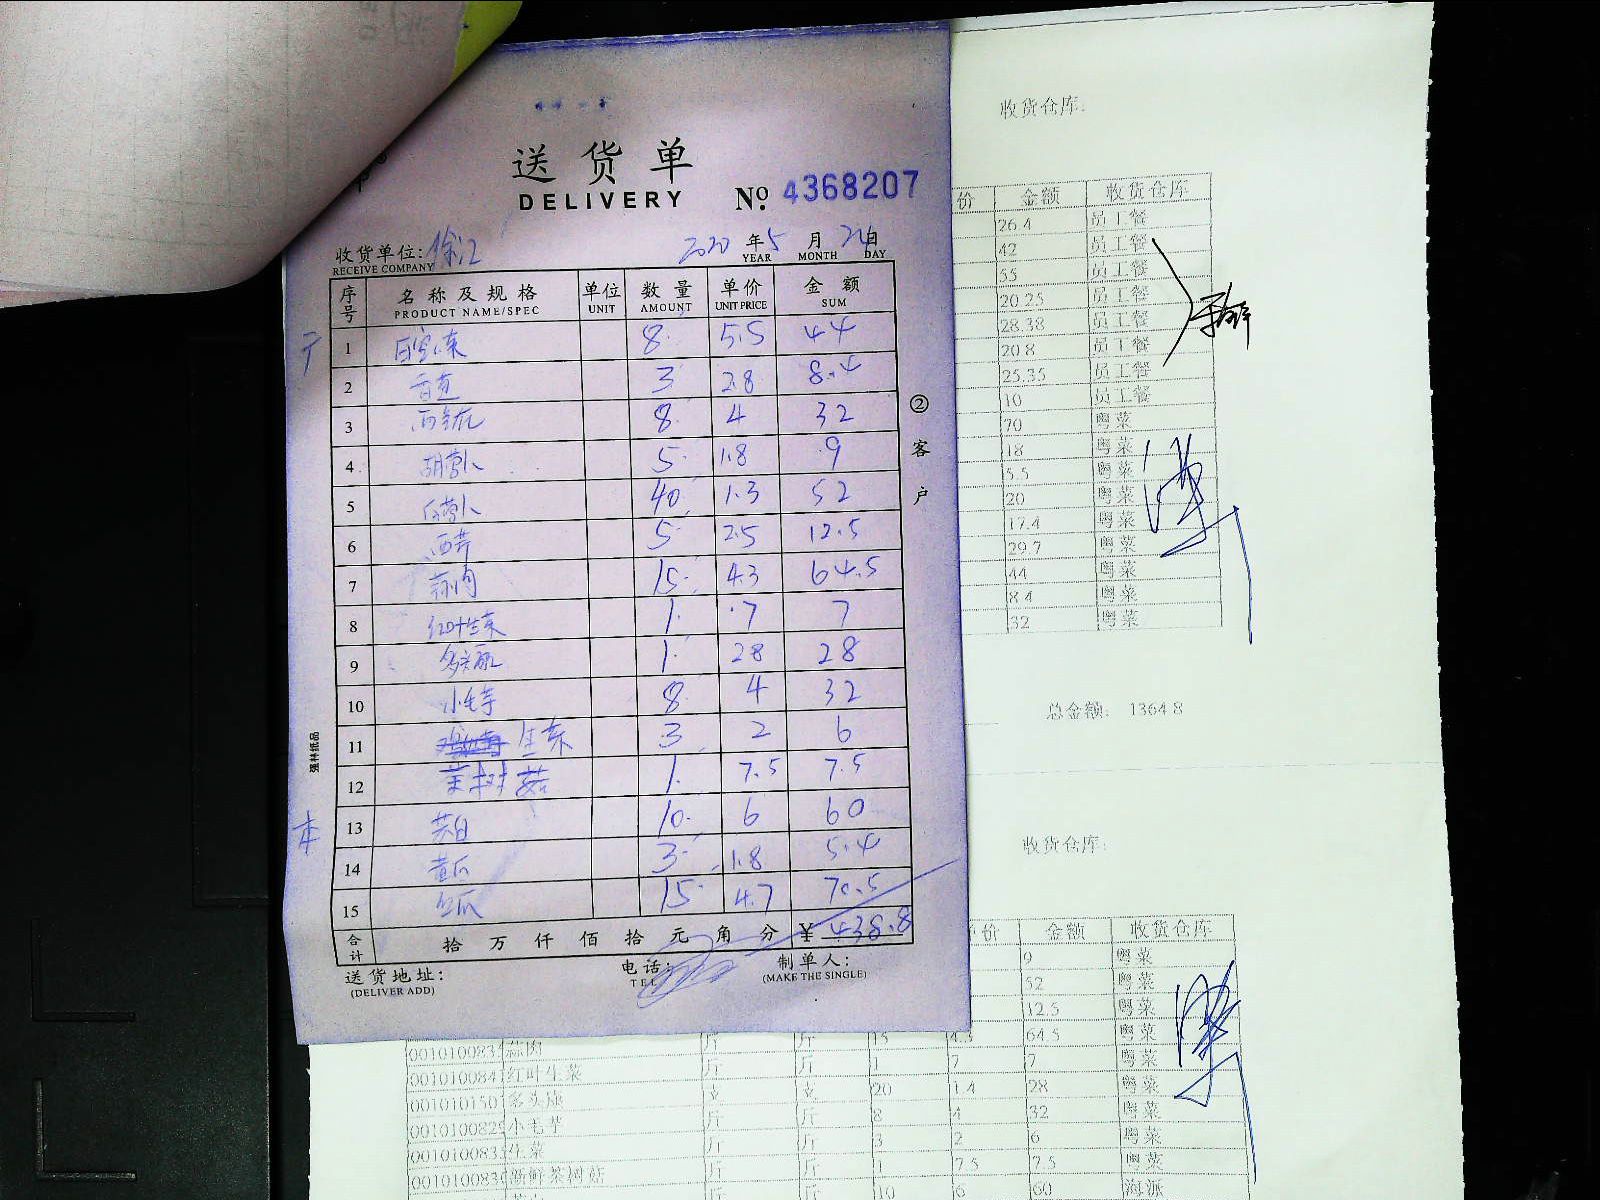 送货单
DELIVERY
№ 4368207
收货单位: 徐江 2020 年 5 月 24 日
RECEIVE COMPANY YEAR MONTH DAY
序号 名称及规格 单位 数量 单价 金额
PRODUCT NAME/SPEC UNIT AMOUNT UNIT PRICE SUM
1 8 5.5 44
2 3 2.8 8.4
3 8 4 32
4 胡萝卜 5 1.8 9
5 白萝卜 40 1.3 52
6 西芹 5 2.5 12.5
7 蒜肉 15 4.3 64.5
8 红叶生菜 1 7 7
9 1 28 28
10 小毛芋 8 4 32
11 生菜 3 2 6
12 茶树菇 1 7.5 7.5
13 茭白 10 6 60
14 黄瓜 3 1.8 5.4
15 15 4.7 70.5
合计 拾 万 仟 佰 拾 元 角 分 ¥ 438.8
送货地址: 电话: 制单人:
(DELIVER ADD) TEL (MAKE THE SINGLE)
② 客户
强林纸品
收货仓库:
价 金额 收货仓库
26.4 员工餐
42 员工餐
55 员工餐
20.25 员工餐
28.38 员工餐
20.8 员工餐
25.35 员工餐
10 员工餐
70 粤菜
18 粤菜
5.5 粤菜
20 粤菜
17.4 粤菜
29.7 粤菜
44 粤菜
8.4 粤菜
32 粤菜
总金额: 1364.8
收货仓库:
价 金额 收货仓库
9 粤菜
52 粤菜
12.5 粤菜
蒜肉 斤 斤 15 4.3 64.5 粤菜
红叶生菜 斤 斤 1 7 7 粤菜
支 支 20 1.4 28 粤菜
小毛芋 斤 斤 8 4 32 粤菜
生菜 斤 斤 3 2 6 粤菜
新鲜茶树菇 斤 斤 1 7.5 7.5 粤菜
斤 斤 10 6 60 海派